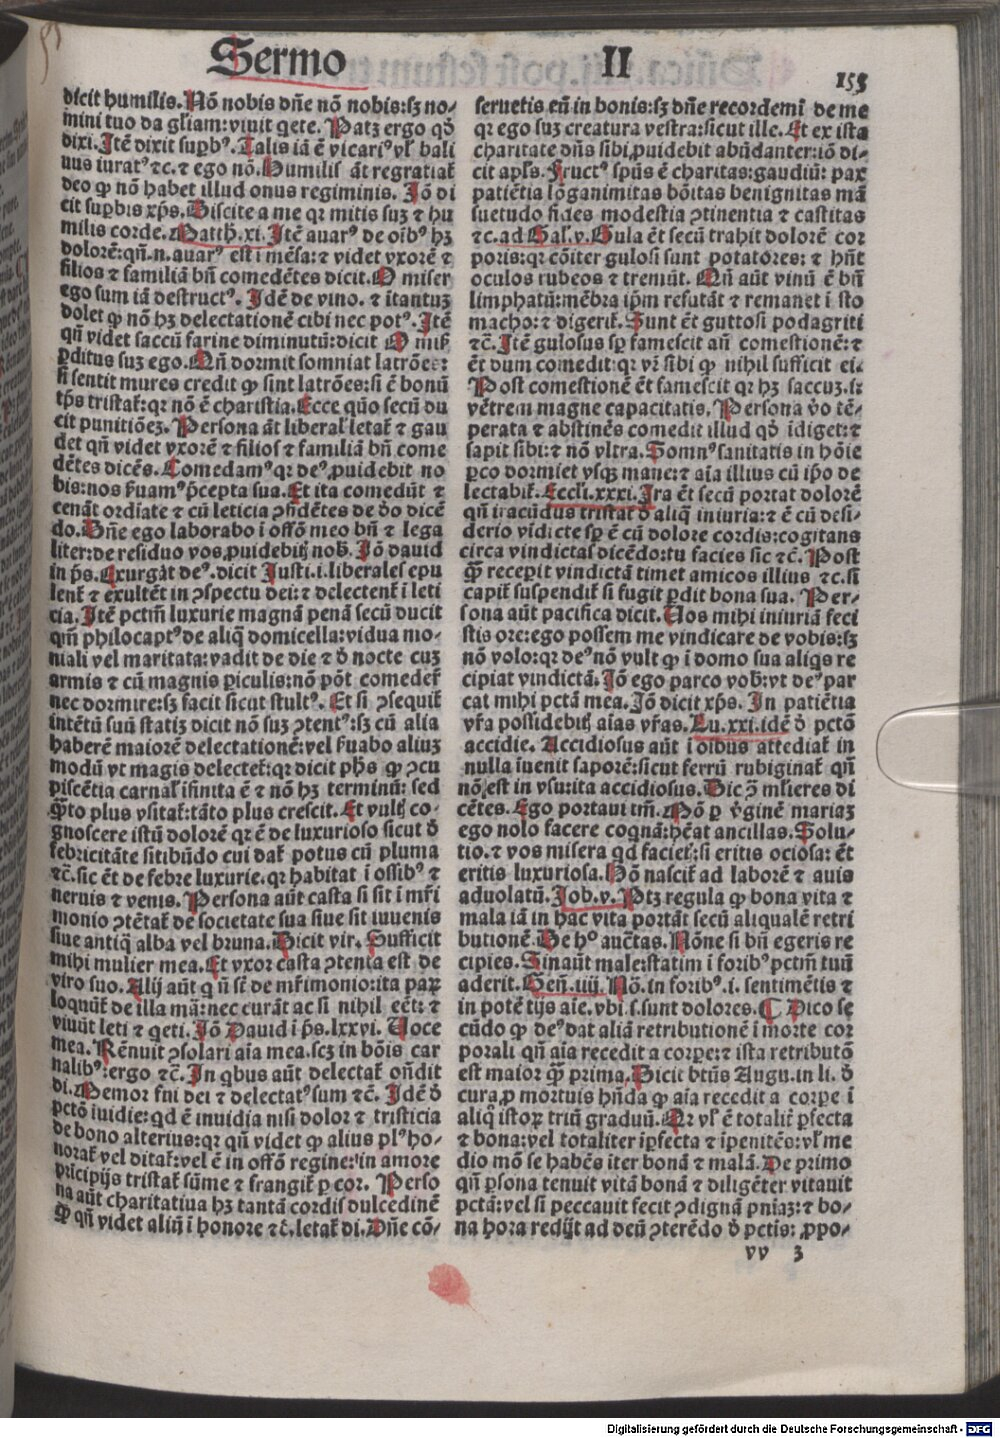 Sermo II 153
dicit humilis. Nō nobis dñe nō nobis: sʒ no-
mini tuo da gl̄iam: viuit q̄ete. Patʒ ergo qḋ
dixi. Itē dixit suꝑbꝰ. Talis iā ē vicariꝰ vl̓ bali
uus iuratꝰ ⁊c. ⁊ ego nō. Humilis āt regratiat̄
deo ꝙ nō habet illud onus regiminis. Iō di
cit suꝑbis xp̄s. Discite a me qꝛ mitis suʒ ⁊ hu
milis corde. Matth. xi. Itē auarꝰ de oībꝰ hʒ
dolorē: qn̄. n. auarꝰ est i mēsa: ⁊ videt vxorē ⁊
filios ⁊ familiā bn̄ comedētes dicit. O miser
ego sum iā destructꝰ. Idē de vino. ⁊ itantuʒ
dolet ꝙ nō hʒ delectationē cibi nec potꝰ. Itē
qn̄ videt saccū farine diminutū: dicit O misẽ
ꝑditus suʒ ego. Qn̄ dormit somniat latrōes:
si sentit mures credit ꝙ sint latrōes: si ē bonū
tp̄s tristat̄: qꝛ nō ē charistia. Ecce quō secū du
cit punitiōeʒ. Persona āt liberal̓ letat̄ ⁊ gau
det qn̄ videt vxorē ⁊ filios ⁊ familiā bn̄ come
dētes dicēs. Comedamꝰ qꝛ deꝰ ꝓuidebit no
bis: nos ẜuamꝰ p̄cepta sua. Et ita comedūt ⁊
cenāt ordīate ⁊ cū leticia ꝯfidētes de ḋo dicē
do. Dn̄e ego laborabo i offō meo bn̄ ⁊ lega
liter: de residuo vos ꝓuidebitꝭ nob̄. Iō dauid
in ps̄. Exurgāt deꝰ. dicit Iusti. i. liberales epu
lent̄ ⁊ exultēt in ꝯspectu dei: ⁊ delectent̄ i leti
cia. Itē pctm̄ luxurie magnā penā secū ducit
qm̄ philocaptꝰ de aliq̄ domicella: vidua mo-
niali vel maritata: vadit de die ⁊ ḋ nocte cuʒ
armis ⁊ cū magnis ꝑiculis: nō pōt comedeř
nec dormire: sʒ facit sicut stultꝰ. Et si ꝯsequit̄
intētū suū statiʒ dicit nō suʒ ꝯtentꝰ: sʒ cū alia
haberē maiorē delectationē: vel ẜuabo aliuʒ
modū vt magis delectet̄: qꝛ dicit phs̄ ꝙ ꝯcu
piscētia carnal̓ ifinita ē ⁊ nō hʒ terminū: sed
q̄to plus vsitat̄: tāto plus crescit. Et vultꝭ co-
gnoscere istū dolorē qꝛ ē de luxurioso sicut ḋ
febricitāte sitibūdo cui dat̄ potus cū pluma
⁊c̄. sic ēt de febre luxurie. qꝛ habitat i ossibꝰ ⁊
neruis ⁊ venis. Persona aūt casta si sit i mr̄i
monio ꝯtētat̄ de societate sua siue sit iuuenis
siue antiq̄ alba vel bruna. Dicit vir. Sufficit
mihi mulier mea. Et vxor casta ꝯtenta est de
viro suo. Alij aūt q n̄ sr̄ de mr̄imonio: ita paꝝ
loquūt̄ de illa mā: nec curāt ac si nihil eēt: ⁊
viuūt leti ⁊ q̄eti. Iō Dauid i ps̄. lxxvi. Uoce
mea. Rēnuit ꝯsolari aīa mea. scʒ in bōis car
nalibꝰ: ergo ⁊c̄. In qbus aūt delectat̄ on̄dit
di. Memor fui dei ⁊ delectatꝰ sum ⁊c̄. Idē ḋ
pctō iuidie: qd ē inuidia nisi dolor ⁊ tristicia
de bono alterius: qꝛ qn̄ videt ꝙ alius plꝰ ho-
norat̄ vel ditat̄: vel ē in offō regine: in amore
pn̄cipijs tristat̄ sūme ⁊ frangit̄ ꝑ cor. Perso
na aūt charitatiua hʒ tantā cordis dulcedinē
ꝙ qn̄ videt aliq̄ i honore ⁊c̄. letat̄ di. Dn̄e cō-
seruetis eū in bonis: sʒ dn̄e recordemī de me
qꝛ ego suʒ creatura vestra: sicut ille. Et ex ista
charitate dn̄s sibi ꝓuidebit abūdanter: iō di-
cit apl̓s. Fructꝰ spūs ē charitas: gaudiū: pax
patiētia lōganimitas bōitas benignitas mā
suetudo fides modestia ꝯtinentia ⁊ castitas
⁊c. ad Gal̓. v. Gula ēt secū trahit dolorē cor
poris: qꝛ cōiter gulosi sunt potatores: ⁊ hn̄t
oculos rubeos ⁊ tremūt. Qn̄ aūt vinū ē bn̄
limphatū: mēbra ip̄m refutāt ⁊ remanet i sto
macho: ⁊ digerit̄. Sunt ēt guttosi podagriti
⁊c̄. Itē gulosus sp̄ famescit an̄ comestionē: ⁊
ēt dum comedit: qꝛ vr̄ sibi ꝙ nihil sufficit ei.
Post comestionē ēt famescit qꝛ hʒ saccuʒ. s:
vētrem magne capacitatis. Persona ḋo tē-
perata ⁊ abstinēs comedit illud qḋ idiget: ⁊
sapit sibi: ⁊ nō vltra. Somnꝰ sanitatis in hōie
ꝑco dormiet vsqʒ mane: ⁊ aīa illius cū ip̄o de
lectabit̄. Eccl̓i. xxxi. Ira ēt secū portat dolorē
qn̄ iracūdus tristat̄ ḋ aliq̄ iniuria: ⁊ ē cū desi-
derio vidicte sp̄ ē cū dolore cordis: cogitans
circa vindictas dicēdo: tu facies sic ⁊c̄. Post
q̄ recepit vindictā timet amicos illius ⁊c. si
capit̄ suspendit̄ si fugit ꝑdit bona sua. Per-
sona aūt pacifica dicit. Uos mihi iniuriā feci
stis ore: ego possem me vindicare de vobis: sʒ
nō volo: qꝛ deꝰ nō vult ꝙ i domo sua aliqs re
cipiat vindictā. Iō ego parco vob̄: vt deꝰ par
cat mihi pctā mea. Iō dicit xp̄s. In patiētia
vr̄a possidebitꝭ aīas vr̄as. Lu. xxi. idē ḋ pctō
accidie. Accidiosus aūt i oībus attediat̄ in
nulla iuenit saporē: sicut ferrū rubiginat̄ qn̄
nō est in vsu: ita accidiosus. Dic ꝯ ml̓ieres di
cētes. Ego portaui tm̄. Nō ꝑ v̓ginē mariaʒ
ego nolo facere coqnā: hēat ancillas. Solu-
tio. ⁊ vos misera qd faciet̄: si eritis ociosa: ēt
eritis luxuriosa. Hō nascit̄ ad laborē ⁊ auis
ad volatū. Job. v. Ptʒ regula ꝙ bona vita ⁊
mala iā in hac vita portāt secū aliqualē retri
butionē. De hͦ auctas. Nōne si bn̄ egeris re
cipies. Sin aūt male: statim i foribꝰ pctm̄ tuū
aderit. Gen̄. iiij. Nō. in foribꝰ. i. sentimētis ⁊
in potētijs aīe. vbi. s. sunt dolores. ¶ Dico se
cūdo ꝙ deꝰ dat aliā retributionē i morte cor
porali qn̄ aīa recedit a corpe: ⁊ ista retributō
est maior q̄ prima. Dicit bt̄us Augu. in li. ḋ
cura ꝓ mortuis hn̄da ꝙ aīa recedit a corpe i
aliq̄ istoꝝ triū graduū. Qꝛ vl̓ ē totalit̄ ꝑfecta
⁊ bona: vel totaliter iꝑfecta ⁊ ipenitēs: vl̓ me
dio mō se habēs iter bonā ⁊ malā. De primo
qn̄ ꝑsona tenuit vitā bonā ⁊ diligēter vitauit
pctā: vel si peccauit fecit ꝯdignā pnīaʒ: ⁊ bo-
na hora redijt ad deū ꝯterēdo ḋ pctis: ꝓpo-
vv 3
Digitalisierung gefördert durch die Deutsche Forschungsgemeinschaft - DFG